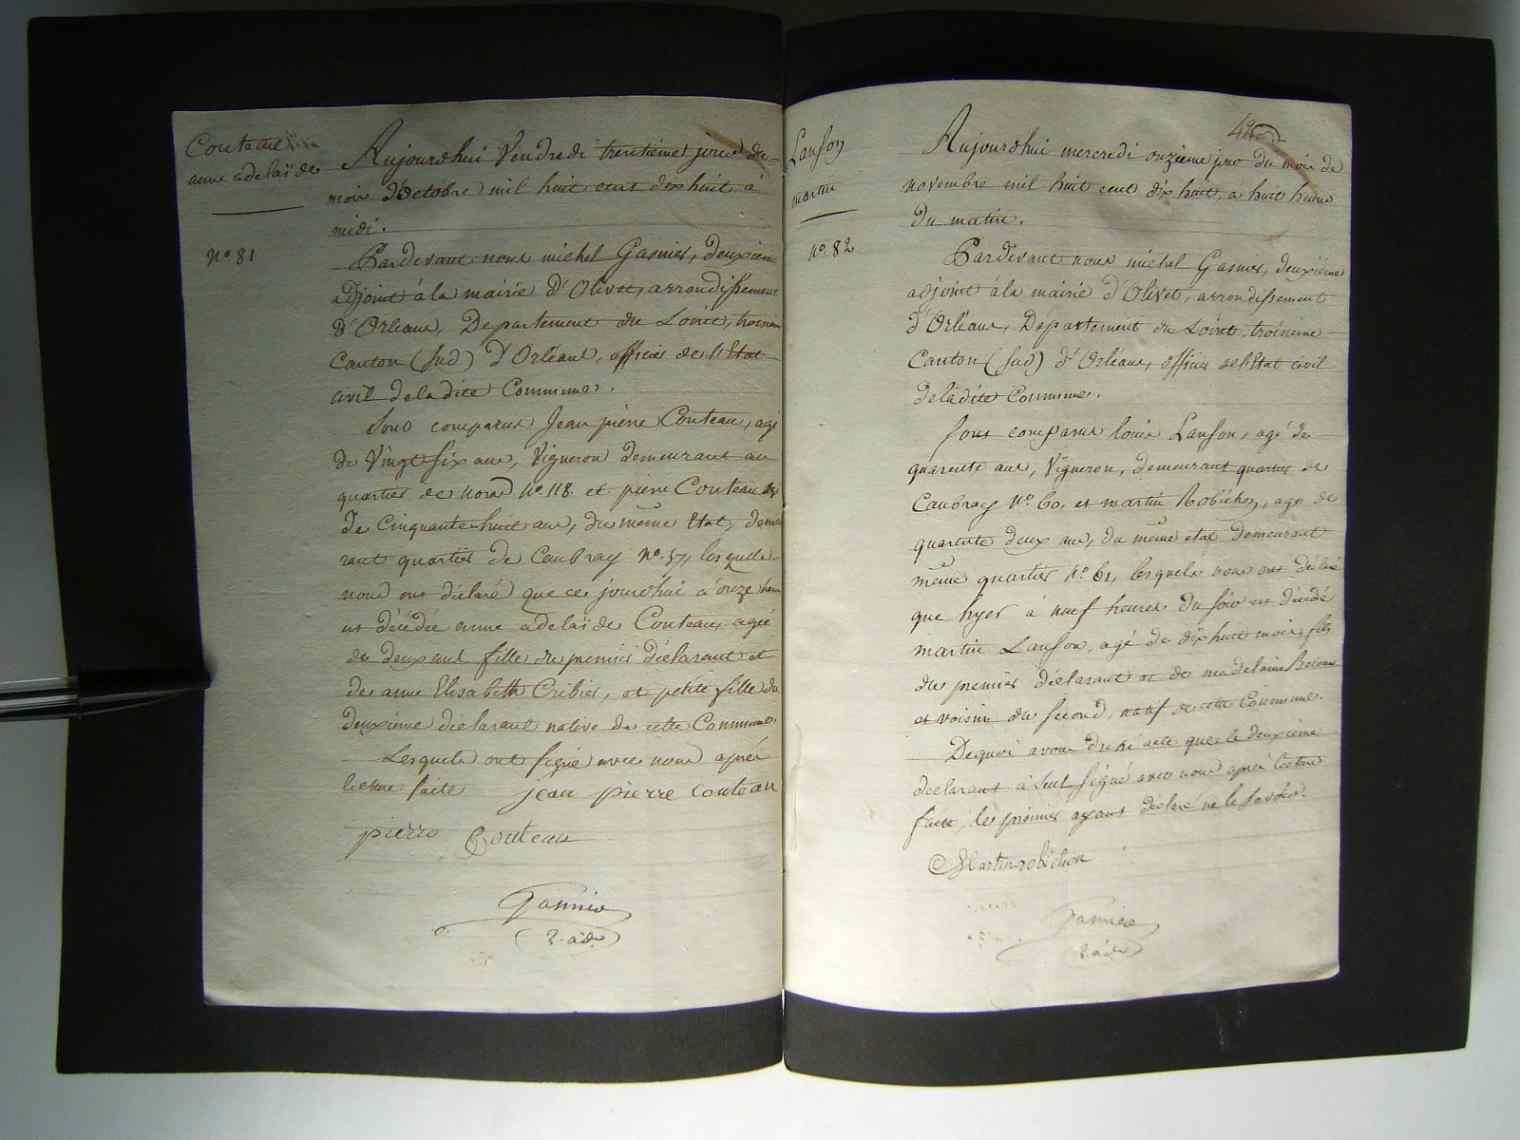 Couteau
anne adelaïde
N° 81
Aujourdhui Vendredi trentieme jour du
mois d'octobre mil huit cent dix huit à
midi.
Pardevant nous michel Gasnier, deuxieme
adjoint à la mairie d'Olivet, arrondissement
d'Orléans, Departement du Loiret, troisieme
Canton (sud) d'Orléans, officier de l'Etat
civil de la dite Commune.
Sont comparus Jean pierre Couteau, agé
de Vingt six ans, Vigneron demeurant au
quartier de nord N° 118. et pierre Couteau agé
de Cinquante huit ans, du même Etat, demeu
rant quartier de Caubray N° 57, lesquels
nous ont déclaré que ce jourdhui à onze heures
est décédée anne adelaïde Couteau, agée
de deux ans fille du premier déclarant et
de anne Elisabeth Cribier, et petite fille du
deuxieme déclarant native de cette Commune.
Lesquels ont signé avec nous après
lecture faite jean pierre couteau
pierre Couteau
Gasnier
2. adj.
42
Lanson
martin
N° 82
Aujourdhui mercredi onzieme jour du mois de
novembre mil huit cent dix huit, à huit heures
du matin.
Pardevant nous michel Gasnier, deuxieme
adjoint à la mairie d'Olivet, arrondissement
d'Orléans, Département du Loiret, troisieme
Canton (sud) d'Orléans, officier de l'Etat civil
de la dite Commune.
Sont comparus louis Lanson, agé de
quarante ans, Vigneron, demeurant quartier de
Caubray N° 60, et martin Robichon, agé de
quarante deux ans, du même etat demeurant
même quartier N° 61, lesquels nous ont déclaré
que hyer à neuf heures du soir est décédé
martin Lanson, agé de dix huit mois, fils
du premier déclarant et de madelaine
et voisin du second, natif de cette Commune.
Dequoi avons dressé acte que le deuxieme
déclarant à seul signé avec nous après lecture
faite, le premier ayant déclaré ne le savoir.
Martin robichon
Gasnier
2. adj.